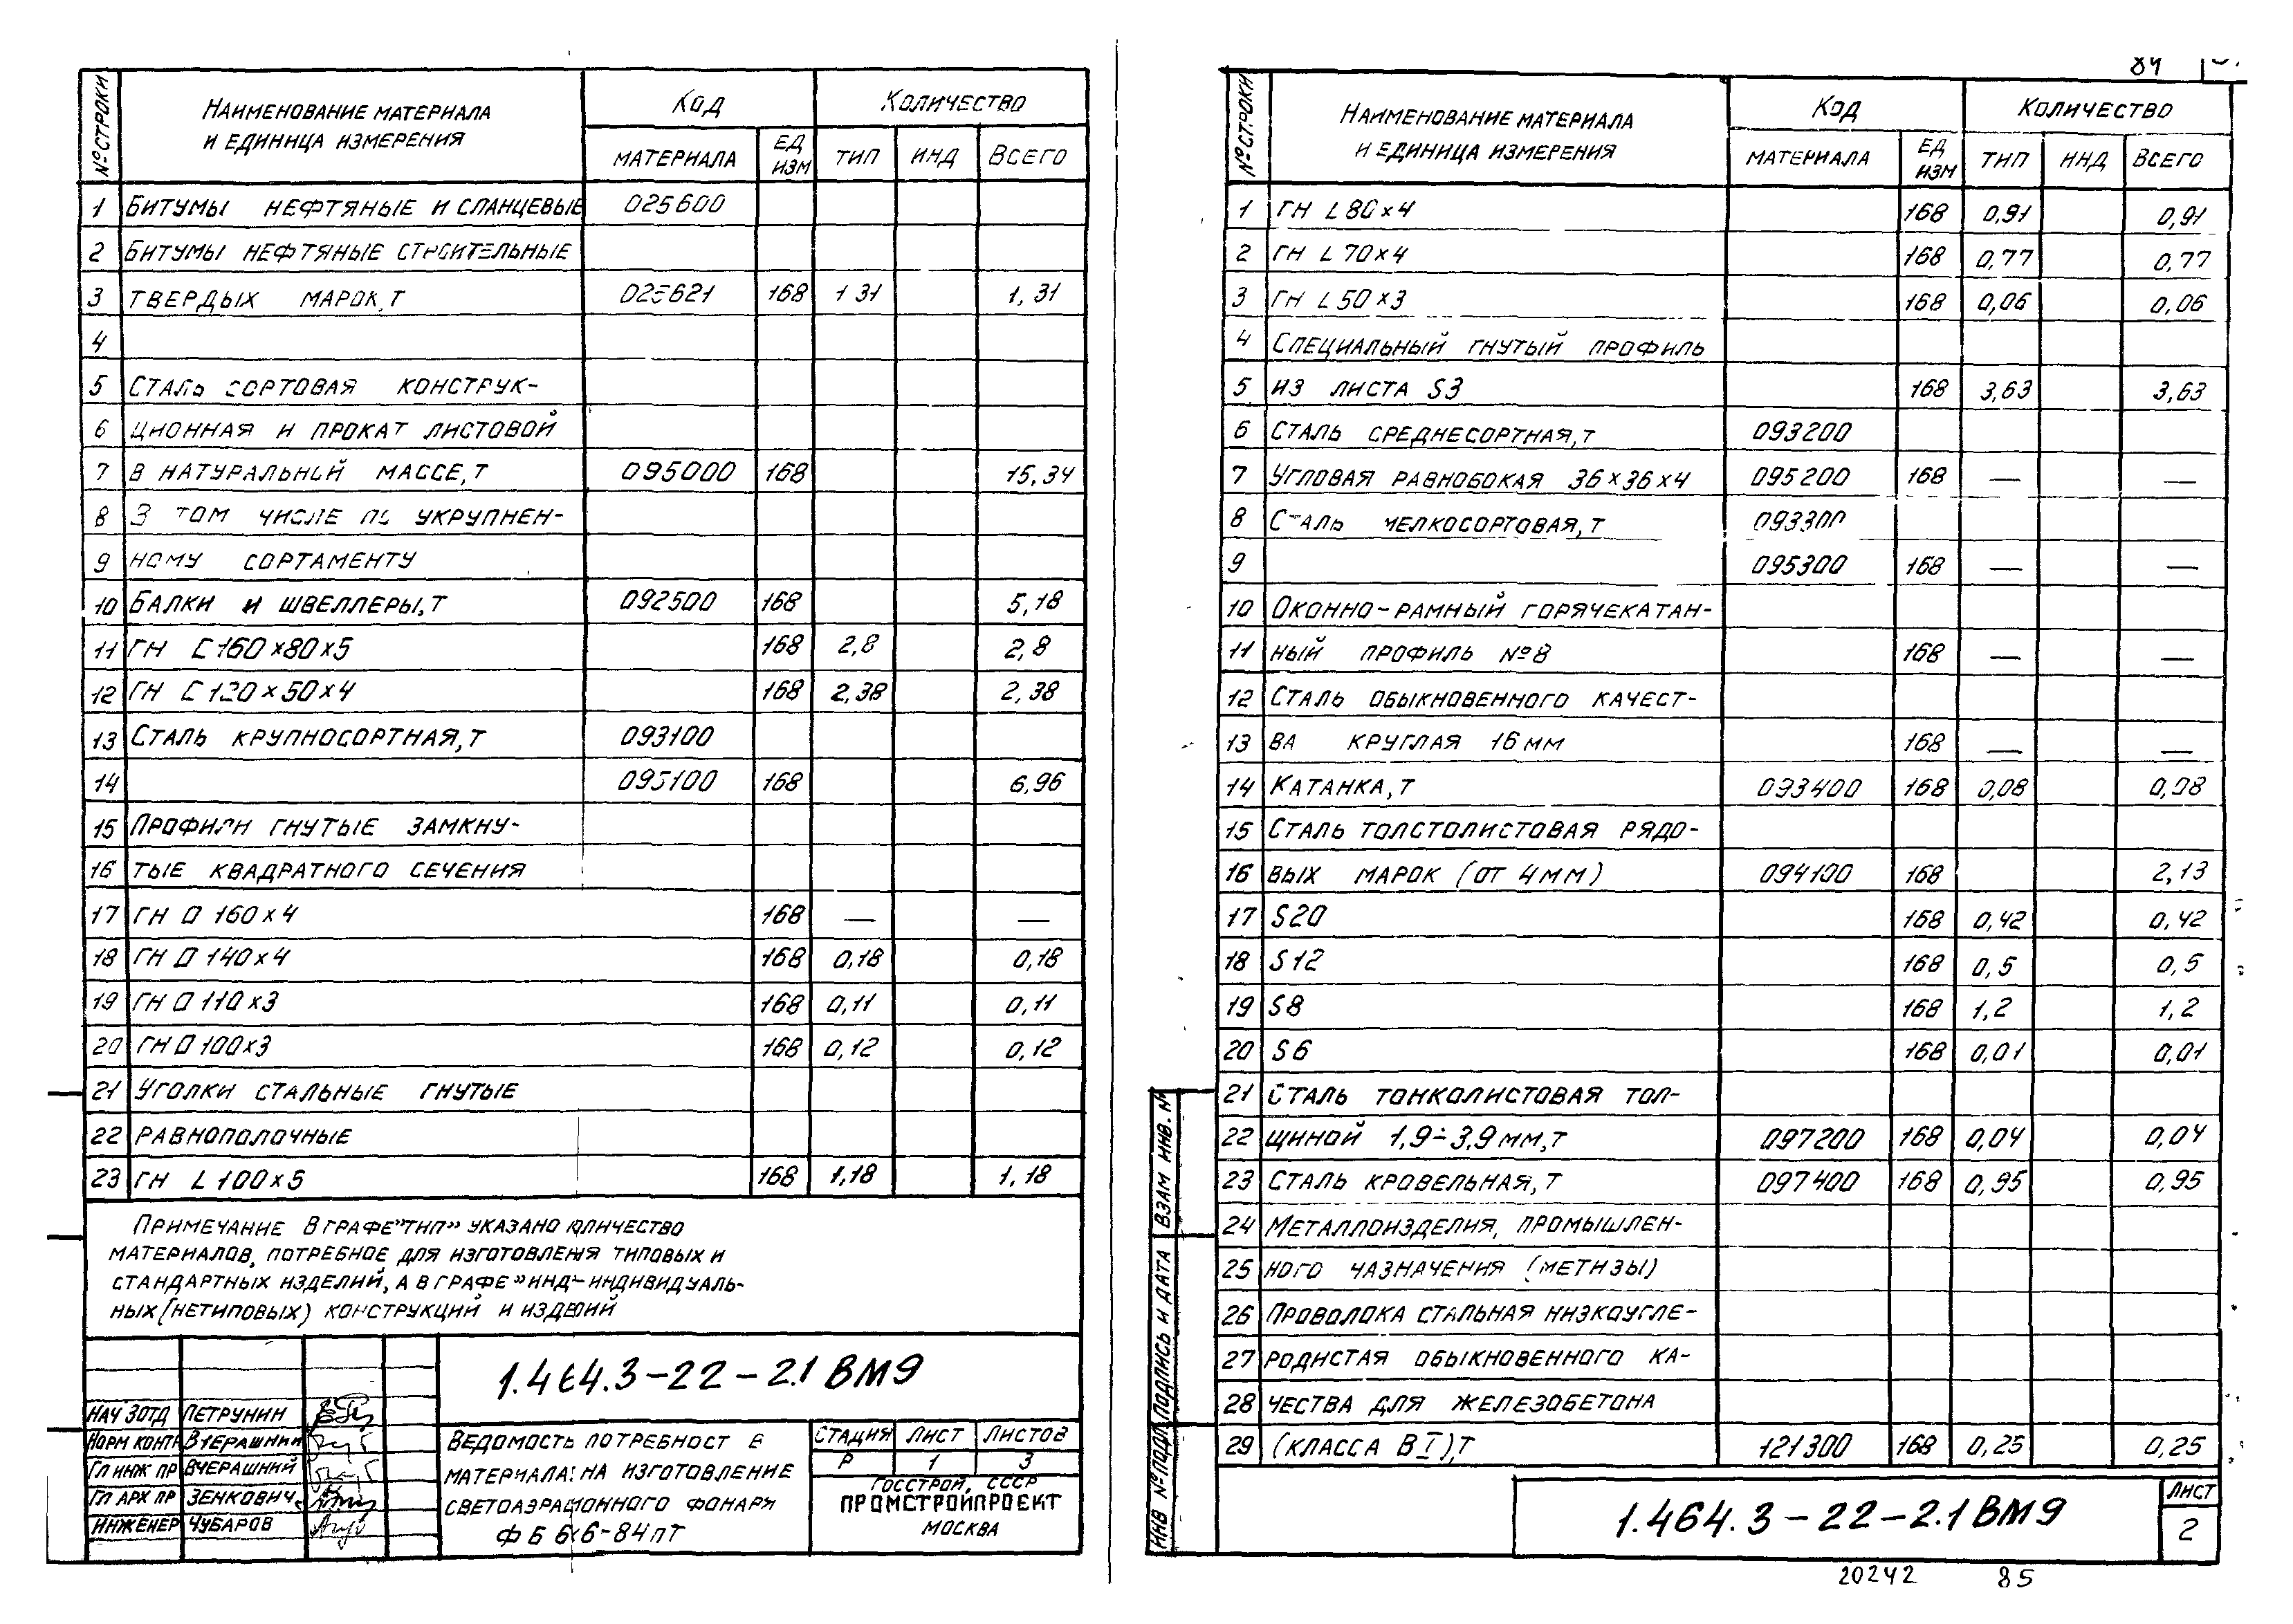 № СТРОКИ НАИМЕНОВАНИЕ МАТЕРИАЛА И ЕДИНИЦА ИЗМЕРЕНИЯ КОД КОЛИЧЕСТВО
МАТЕРИАЛА ЕД ИЗМ ТИП ИНД ВСЕГО
1 БИТУМЫ НЕФТЯНЫЕ И СЛАНЦЕВЫЕ 025600
2 БИТУМЫ НЕФТЯНЫЕ СТРОИТЕЛЬНЫЕ
3 ТВЕРДЫХ МАРОК, Т 025621 168 1 31 1,31
4
5 СТАЛЬ СОРТОВАЯ КОНСТРУК-
6 ЦИОННАЯ И ПРОКАТ ЛИСТОВОЙ
7 В НАТУРАЛЬНОЙ МАССЕ, Т 095000 168 15,34
8 В ТОМ ЧИСЛЕ ПО УКРУПНЕН-
9 НОМУ СОРТАМЕНТУ
10 БАЛКИ И ШВЕЛЛЕРЫ, Т 092500 168 5,18
11 ГН [ 160×80×5 168 2,8 2,8
12 ГН [ 120×50×4 168 2,38 2,38
13 СТАЛЬ КРУПНОСОРТНАЯ, Т 093100
14 095100 168 6,96
15 ПРОФИЛИ ГНУТЫЕ ЗАМКНУ-
16 ТЫЕ КВАДРАТНОГО СЕЧЕНИЯ
17 ГН □ 160×4 168 — —
18 ГН □ 140×4 168 0,18 0,18
19 ГН □ 110×3 168 0,11 0,11
20 ГН □ 100×3 168 0,12 0,12
21 УГОЛКИ СТАЛЬНЫЕ ГНУТЫЕ
22 РАВНОПОЛОЧНЫЕ
23 ГН L 100×5 168 1,18 1,18
ПРИМЕЧАНИЕ В ГРАФЕ "ТИП" УКАЗАНО КОЛИЧЕСТВО
МАТЕРИАЛОВ, ПОТРЕБНОЕ ДЛЯ ИЗГОТОВЛЕНИЯ ТИПОВЫХ И
СТАНДАРТНЫХ ИЗДЕЛИЙ, А В ГРАФЕ "ИНД"- ИНДИВИДУАЛЬ-
НЫХ (НЕТИПОВЫХ) КОНСТРУКЦИЙ И ИЗДЕЛИЙ
1.464.3-22-2.1 ВМ9
НАЧ ЗОТД ПЕТРУНИН
НОРМ КОНТР ВЧЕРАШНИЙ
ГЛ ИНЖ ПР ВЧЕРАШНИЙ
ГЛ АРХ ПР ЗЕНКОВИЧ
ИНЖЕНЕР ЧУБАРОВ
ВЕДОМОСТЬ ПОТРЕБНОСТ В
МАТЕРИАЛАХ НА ИЗГОТОВЛЕНИЕ
СВЕТОАЭРАЦИОННОГО ФОНАРЯ
ФБ 6×6-84ПТ
СТАДИЯ ЛИСТ ЛИСТОВ
Р 1 3
ГОССТРОЙ, СССР
ПРОМСТРОЙПРОЕКТ
МОСКВА
84
№ СТРОКИ НАИМЕНОВАНИЕ МАТЕРИАЛА И ЕДИНИЦА ИЗМЕРЕНИЯ КОД КОЛИЧЕСТВО
МАТЕРИАЛА ЕД ИЗМ ТИП ИНД ВСЕГО
1 ГН L 80×4 168 0,91 0,91
2 ГН L 70×4 168 0,77 0,77
3 ГН L 50×3 168 0,06 0,06
4 СПЕЦИАЛЬНЫЙ ГНУТЫЙ ПРОФИЛЬ
5 ИЗ ЛИСТА S3 168 3,63 3,63
6 СТАЛЬ СРЕДНЕСОРТНАЯ, Т 093200
7 УГЛОВАЯ РАВНОБОКАЯ 36×36×4 095200 168 — —
8 СТАЛЬ МЕЛКОСОРТОВАЯ, Т 093300
9 095300 168 — —
10 ОКОННО-РАМНЫЙ ГОРЯЧЕКАТАН-
11 НЫЙ ПРОФИЛЬ №8 168 — —
12 СТАЛЬ ОБЫКНОВЕННОГО КАЧЕСТ-
13 ВА КРУГЛАЯ 16 ММ 168 — —
14 КАТАНКА, Т 093400 168 0,08 0,08
15 СТАЛЬ ТОЛСТОЛИСТОВАЯ РЯДО-
16 ВЫХ МАРОК (ОТ 4 ММ) 094100 168 2,13
17 S20 168 0,42 0,42
18 S12 168 0,5 0,5
19 S8 168 1,2 1,2
20 S6 168 0,01 0,01
21 СТАЛЬ ТОНКОЛИСТОВАЯ ТОЛ-
22 ЩИНОЙ 1,9÷3,9 ММ, Т 097200 168 0,04 0,04
23 СТАЛЬ КРОВЕЛЬНАЯ, Т 097400 168 0,95 0,95
24 МЕТАЛЛОИЗДЕЛИЯ, ПРОМЫШЛЕН-
25 НОГО НАЗНАЧЕНИЯ (МЕТИЗЫ)
26 ПРОВОЛОКА СТАЛЬНАЯ НИЗКОУГЛЕ-
27 РОДИСТАЯ ОБЫКНОВЕННОГО КА-
28 ЧЕСТВА ДЛЯ ЖЕЛЕЗОБЕТОНА
29 (КЛАССА В I), Т 121300 168 0,25 0,25
ИНВ № ПОДЛ ПОДПИСЬ И ДАТА ВЗАМ ИНВ. №
1.464.3-22-2.1 ВМ9
ЛИСТ
2
20242 85